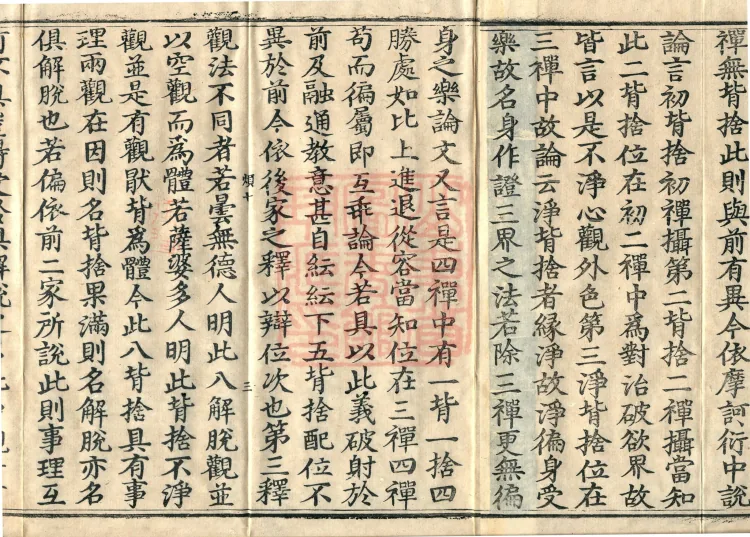 禪無背捨此則與前有異今依摩訶衍中說
論言初背捨初禪攝第二背捨二禪攝當知
此二背捨位在初二禪中爲對治破欲界故
皆言以是不淨心觀外色第三淨背捨位在
三禪中故論云淨背捨者緣淨故淨徧身受
樂故名身作證三界之法若除三禪更無徧
身之樂論文又言是四禪中有一背一捨四
勝處如比上進退從容當知位在三禪四禪
苟而徧屬即互乖論今若具以此義破射於
前及融通教意甚自紜紜下五背捨配位不
異於前今依後家之釋以辯位次也第三釋
煩十
三
觀法不同者若曇無德人明此八解脫觀並
以空觀而爲體若薩婆多人明此背捨不淨
觀並是有觀猒背爲體今此八背捨具有事
理兩觀在因則名背捨果滿則名解脫亦名
俱解脫也若偏依前二家所說此則事理互